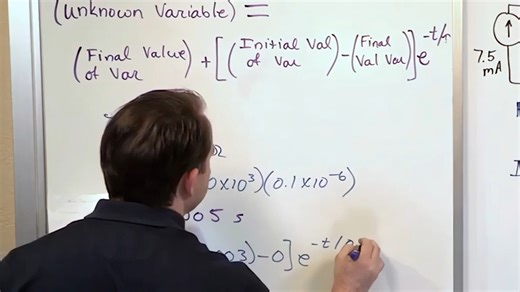 (Unknown Variable) =
(Final Value of Var) + [(Initial Val of Var) - (Final Val Var)] e^-t/τ
7.5 mA
0x10³)(0.1x10⁻⁶)
005 s
003) - 0] e^-t/0